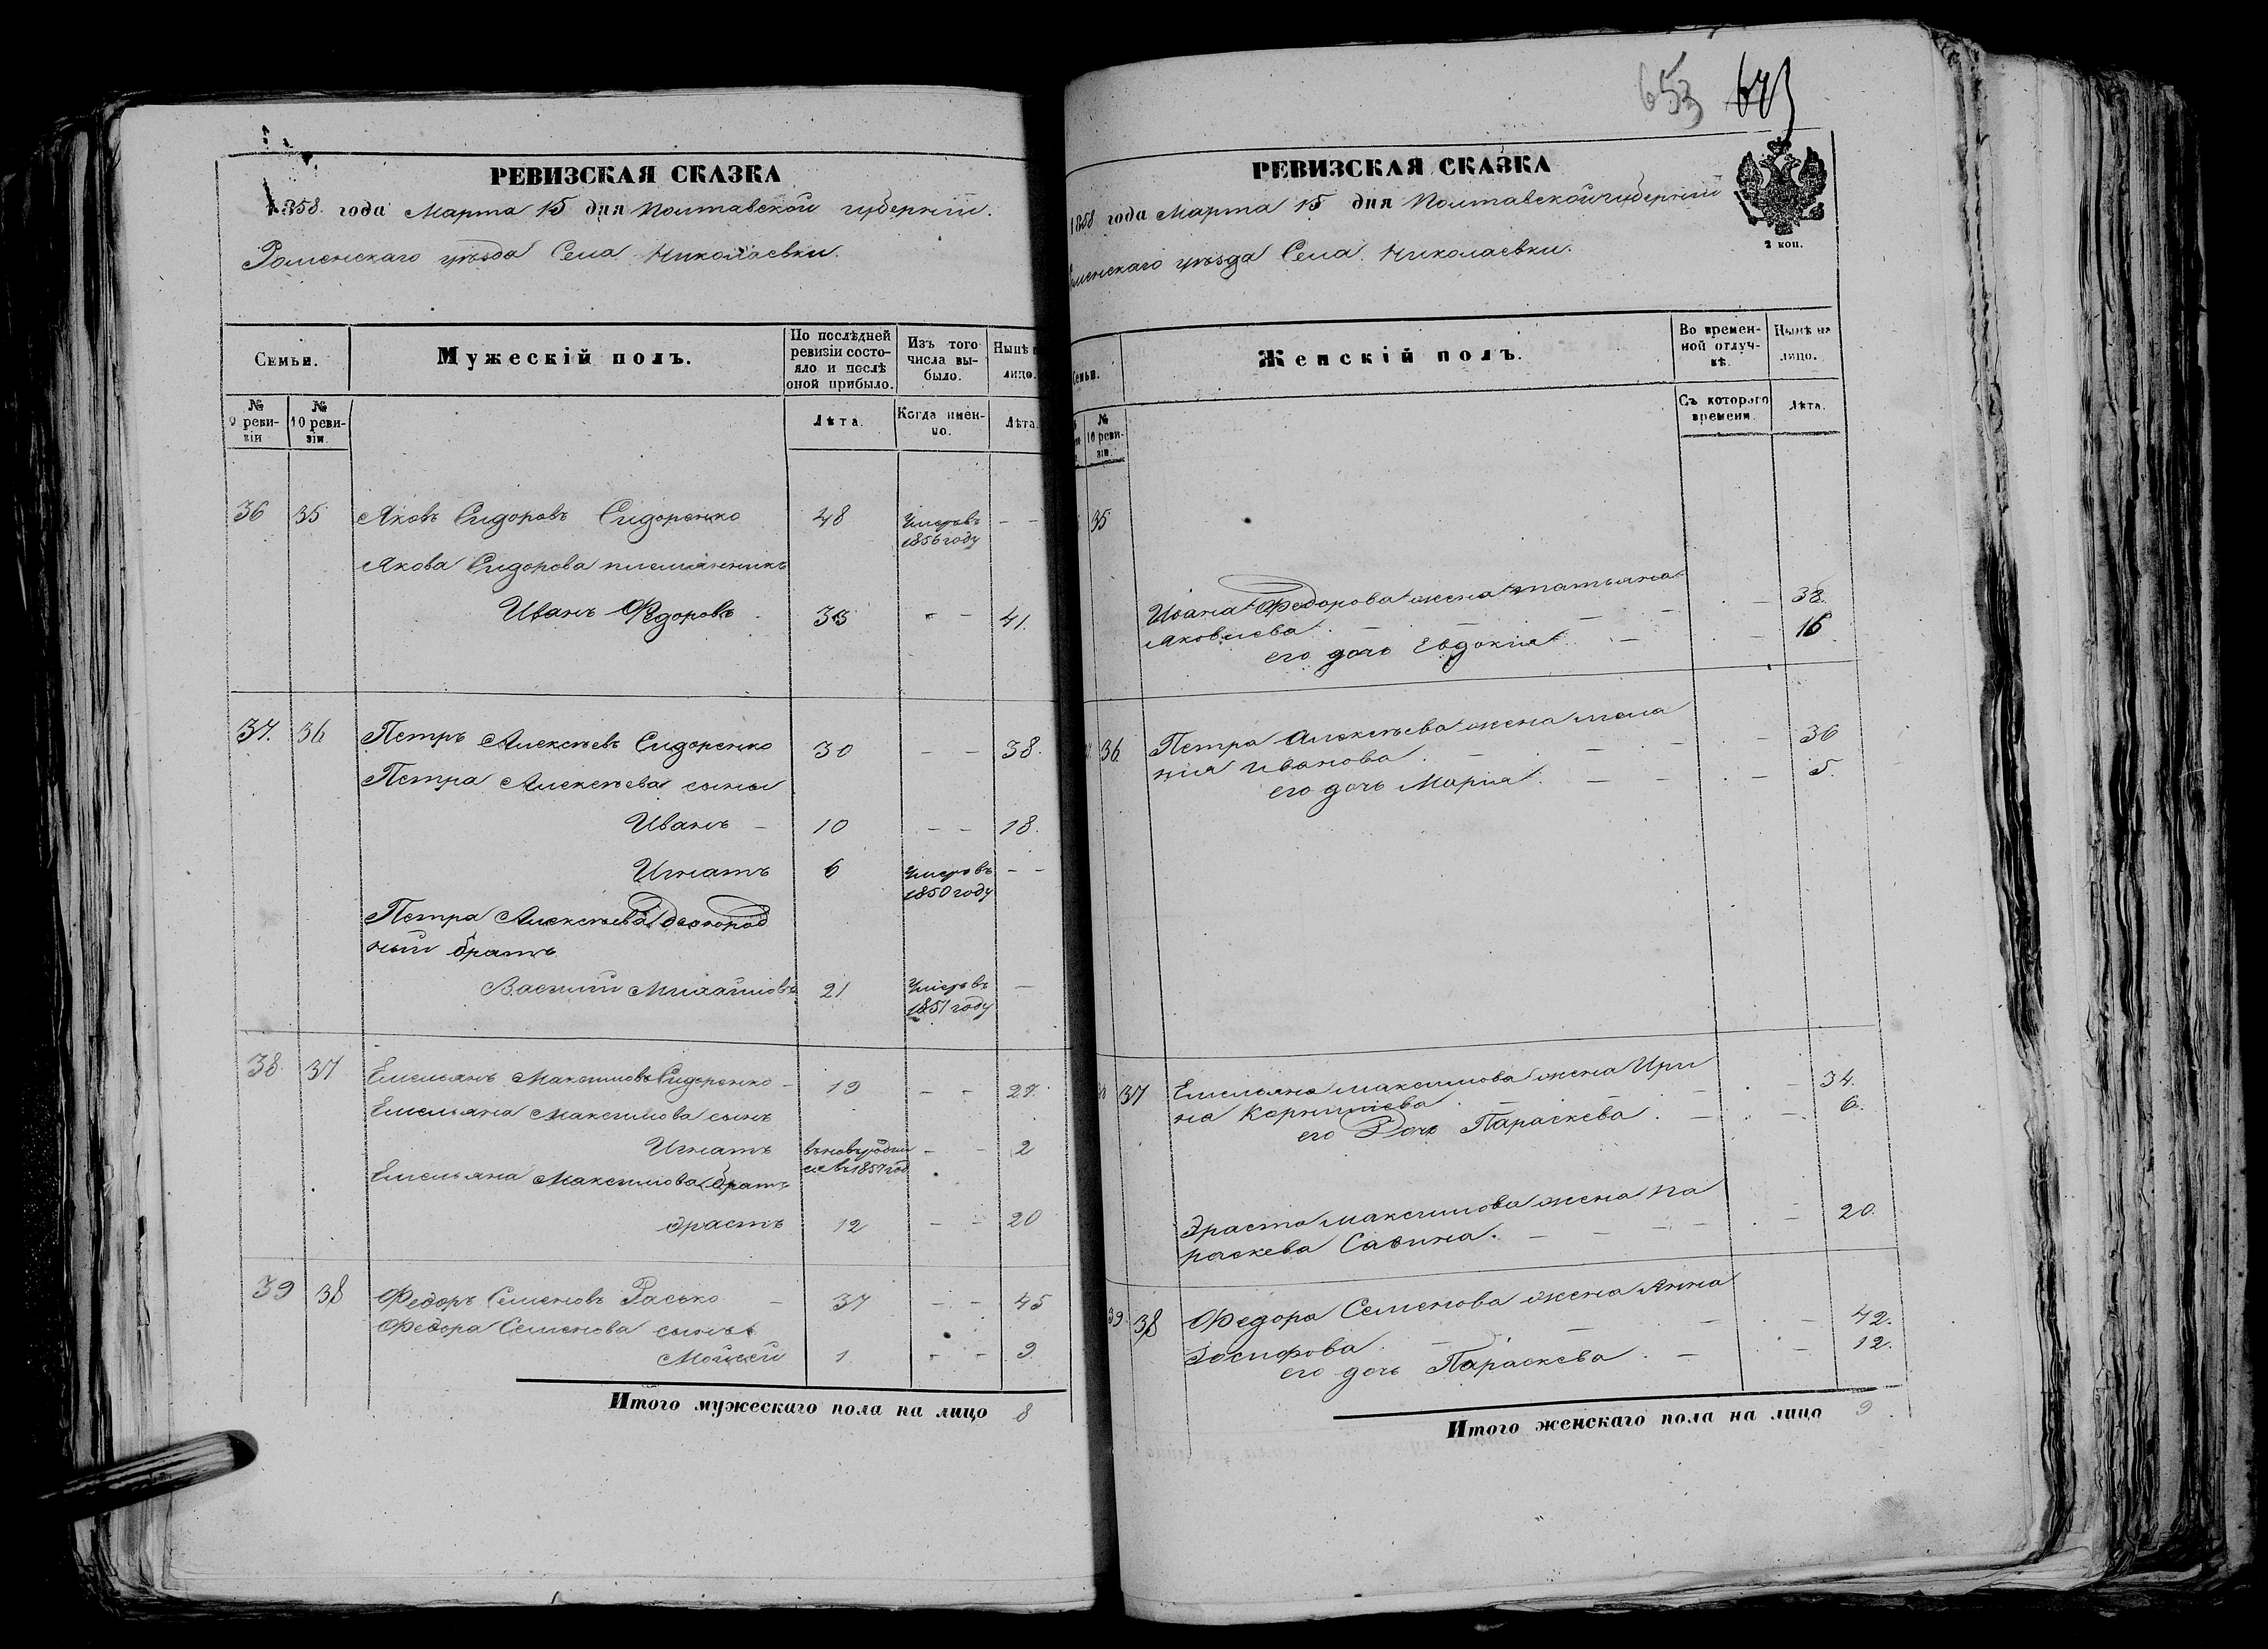 РЕВИЗСКАЯ СКАЗКА
1858 года Марта 15 дня Полтавской губерніи.
Роменскаго уѣзда Села Николаевки.
Семьи.
Мужескій полъ.
По послѣдней ревизіи состояло и послѣ оной прибыло.
Изъ того числа выбыло.
Нынѣ лицо.
№ 9 ревизіи
№ 10 ревизіи.
Лѣта.
Когда именно.
Лѣта.
36 35 Яковъ Сидоровъ Сидоренко 48 Умеръ въ 1856 году – –
Якова Сидорова племянникъ
Иванъ Федоровъ 33 – – 41.
37. 36 Петръ Алексѣевъ Сидоренко 30 – – 38.
Петра Алексѣева сыны
Иванъ – 10 – – 18.
Игнатъ 6 Умеръ въ 1850 году – –
Петра Алексѣева двоюрод
ный братъ
Василій Михайловъ 21 Умеръ въ 1851 году –
38. 37 Емельянъ Максимовъ Сидоренко – 19 – – 27.
Емельяна Максимова сынъ
Игнатъ вновь родил ся въ 1857 год – – 2
Емельяна Максимова братъ
Эрастъ 12 – – 20
39 38 Федоръ Семеновъ Расько – 37 – – 45
Федора Семенова сынъ
Мойсей 1 – – 9
Итого мужескаго пола на лицо 8
653
РЕВИЗСКАЯ СКАЗКА
1858 года Марта 15 дня Полтавской губерніи
менскаго уѣзда Села Николаевки.
2 коп.
Семьи.
Женскій полъ.
Во временной отлучкѣ.
Нынѣ на лицо.
№ 10 ревизіи.
Съ котораго времени.
Лѣта.
35
Ивана Федорова жена Татьяна
Яковлева. – – – – 38.
его дочь Евдокія – – 16
36. Петра Алексѣева жена Мела
нія Иванова. – – – – 36
его дочь Марія. – – – 5.
37 Емельяна Максимова жена Ири
на Корнилiева. – – – – 34.
его Дочь Параскева. – – 6.
Эраста Максимова жена Па
раскева Савина. – – – – 20.
39. 38 Федора Семенова жена Анна
Іосифова. – – – – 42.
его дочь Параскева. – – 12.
Итого женскаго пола на лицо 9